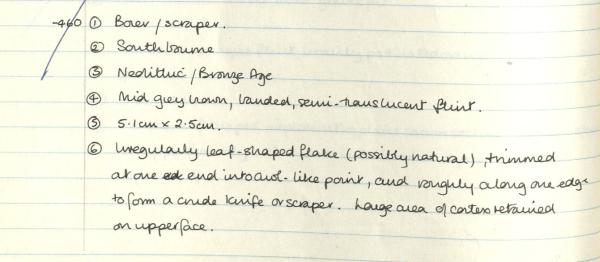 -460 ① Borer / scraper.
② Southbourne
③ Neolithic / Bronze Age
④ Mid grey brown, banded, semi-translucent flint.
⑤ 5.1cm x 2.5cm.
⑥ Irregularly leaf-shaped flake (possibly natural), trimmed
at one end into awl-like point, and roughly along one edge
to form a crude knife or scraper. Large area of cortex retained
on upper face.